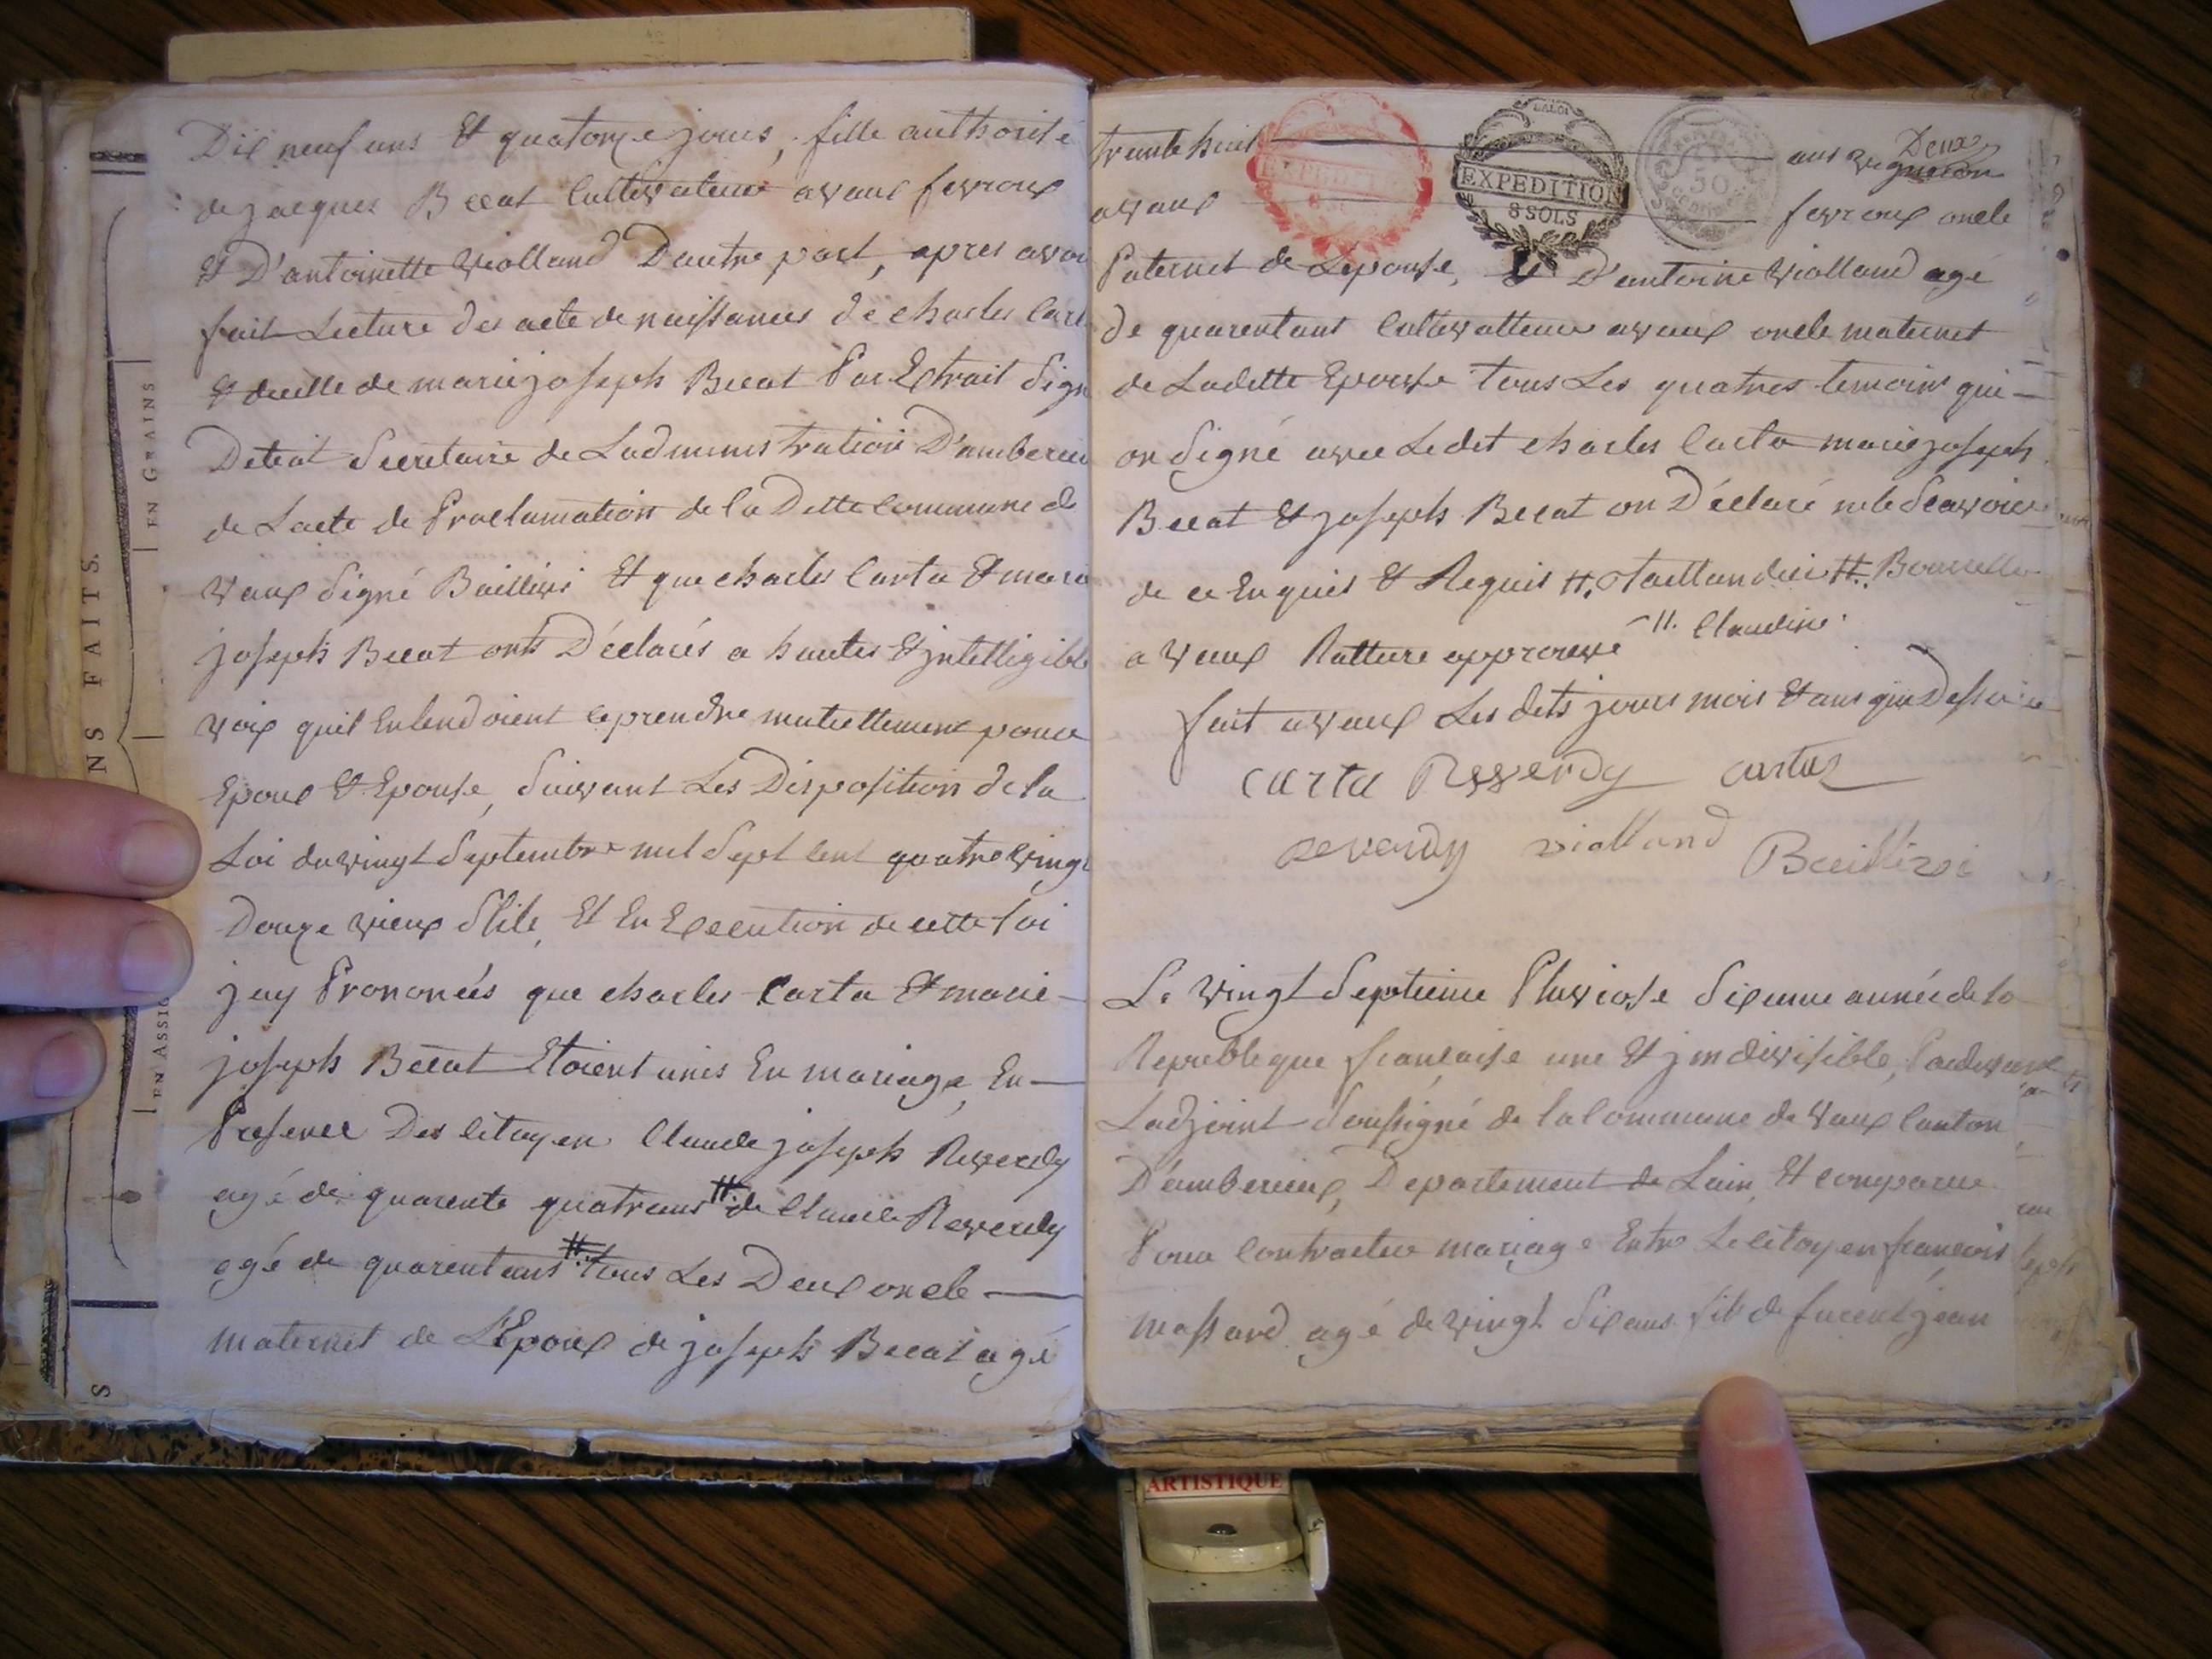 Dix neuf ans Et quatorze jours, fille authorisé
de jacques Beccat Cultivateur a vaux fevroux
Et D'antoinette Violland D'autre part, apres avoi
fait Lecture des acte de naissances de charles Cart
Et de celle de marie joseph Beccat Par Extrait Sign
Secretaire de Ladministration D'amberieu
de Lacte de Proclamation de la Ditte Commune de
Vaux Signé Baillivi Et que charles Carta Et marie
joseph Beccat onts Déclarés a hautes Et jntelligible
voix quil Entendoient ce prendre mutuellement pour
Epoux Et Epouse, Suivant Les Disposition de la
Loi du vingt Septembre mil Sept Cent quatre vingt
Douze vieux Stile, Et En Execution de cette Loi
jay Prononcés que charles Carta Et marie
joseph Beccat Etoient unis En mariage, En
Presence Des Citoyen Claude joseph Reverdy
agé de quarente quatre ans #. de Claude Reverdy
agé de quarent ans #. tous Les Deux oncle
maternel de L'Epoux de joseph Beccat agé
EN GRAINS
NS FAITS.
EN ASSIG
S
trente huit ans vigneron Deux
a vaux fevroux oncle
Paternel de Lepouse, Et D'antoine Violland agé
de quarent ans Cultivatteur a vaux oncle maternel
de Laditte Epouse tous Les quatres temoins qui
on Signé avec Ledit charles Carta marie joseph
Beccat Et joseph Beccat on Déclaré ne le Scavoir
de ce Enquis Et Requis #. taillandier #.
a Vaux Ratture approuvé #. Claudine.
fait a vaux Les dits jours mois Et ans que Dessus
EXPEDITION
8 SOLS
EXPEDITION
8 SOLS
50
carta Reverdy cartaz
reverdy violland Baillivi
Le vingt Septieme Pluviose Sixieme année de la
Republique francaise une Et jndivisible, Pardevant
Ladjoint Soussigné de la Commune de Vaux Canton
D'amberieux, Departement de Lain, Et comparu
Pour Contracter mariage Entre Le Citoyen francois
massard agé de vingt Six ans fils de jean
ARTISTIQUE